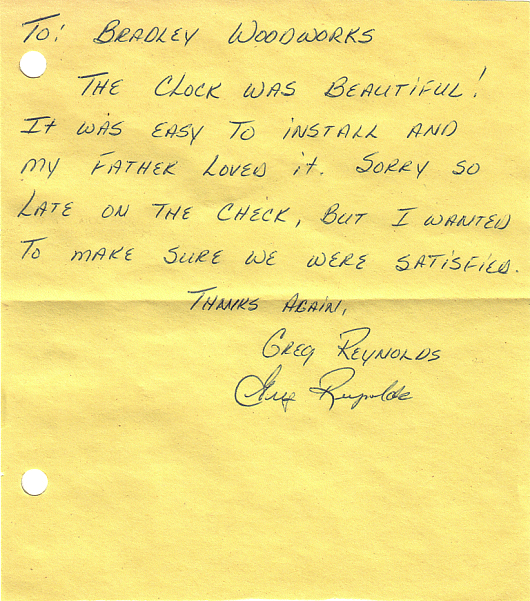 To: Bradley Woodworks
The clock was beautiful!
It was easy to install and
my father loved it. Sorry so
late on the check, but I wanted
to make sure we were satisfied.
Thanks again,
Greg Reynolds
Greg Reynolds